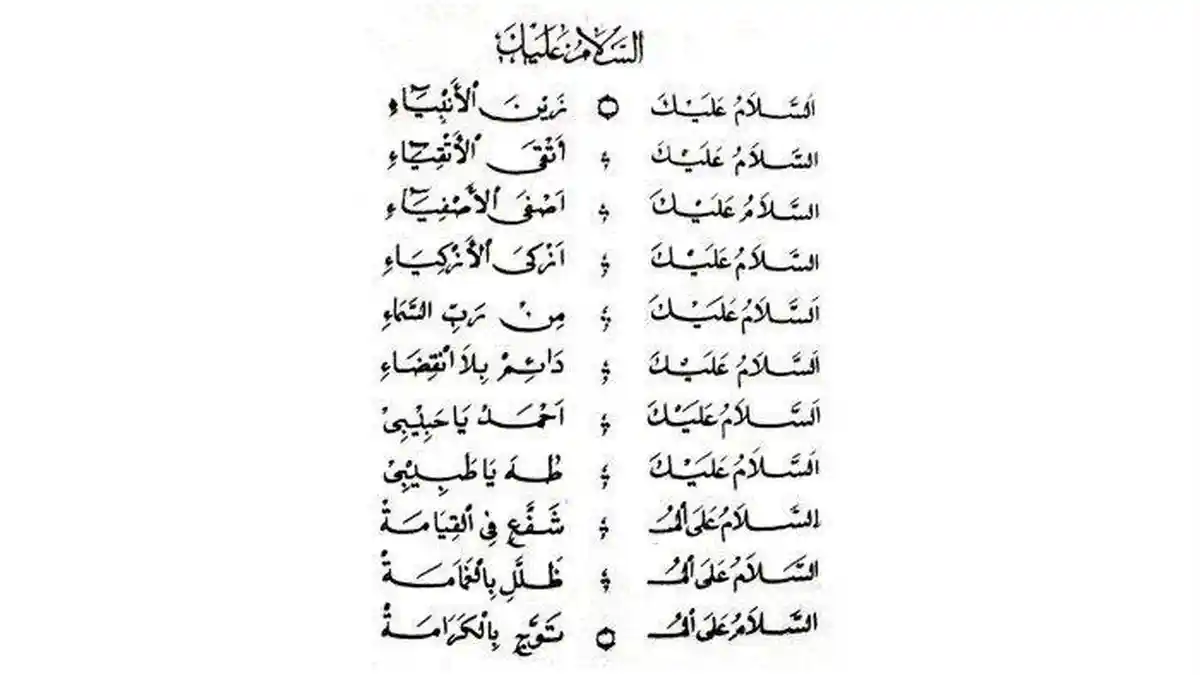 السَّلَامُ عَلَيْكَ
اَلسَّلَامُ عَلَيْكَ زَيْنَ الْأَنْبِيَآءِ
السَّلَامُ عَلَيْكَ أَتْقَى الْأَتْقِيَآءِ
السَّلَامُ عَلَيْكَ اَصْفَى الْأَصْفِيَآءِ
السَّلَامُ عَلَيْكَ اَزْكَى الْأَزْكِيَاءِ
اَلسَّلَامُ عَلَيْكَ مِنْ رَبِّ السَّمَاءِ
اَلسَّلَامُ عَلَيْكَ دَائِمْ بِلَا انْقِضَاءِ
اَلسَّلَامُ عَلَيْكَ اَحْمَدُ يَا حَبِيْبِيْ
اَلسَّلَامُ عَلَيْكَ طٰهَ يَا طَبِيْبِيْ
السَّلَامُ عَلَى الْمُ شَفَّعِ فِي الْقِيَامَةْ
السَّلَامُ عَلَى الْمُ ظَلَّلِ بِالْغَمَامَةْ
السَّلَامُ عَلَى الْمُ تَوَّجِ بِالْكَرَامَةْ